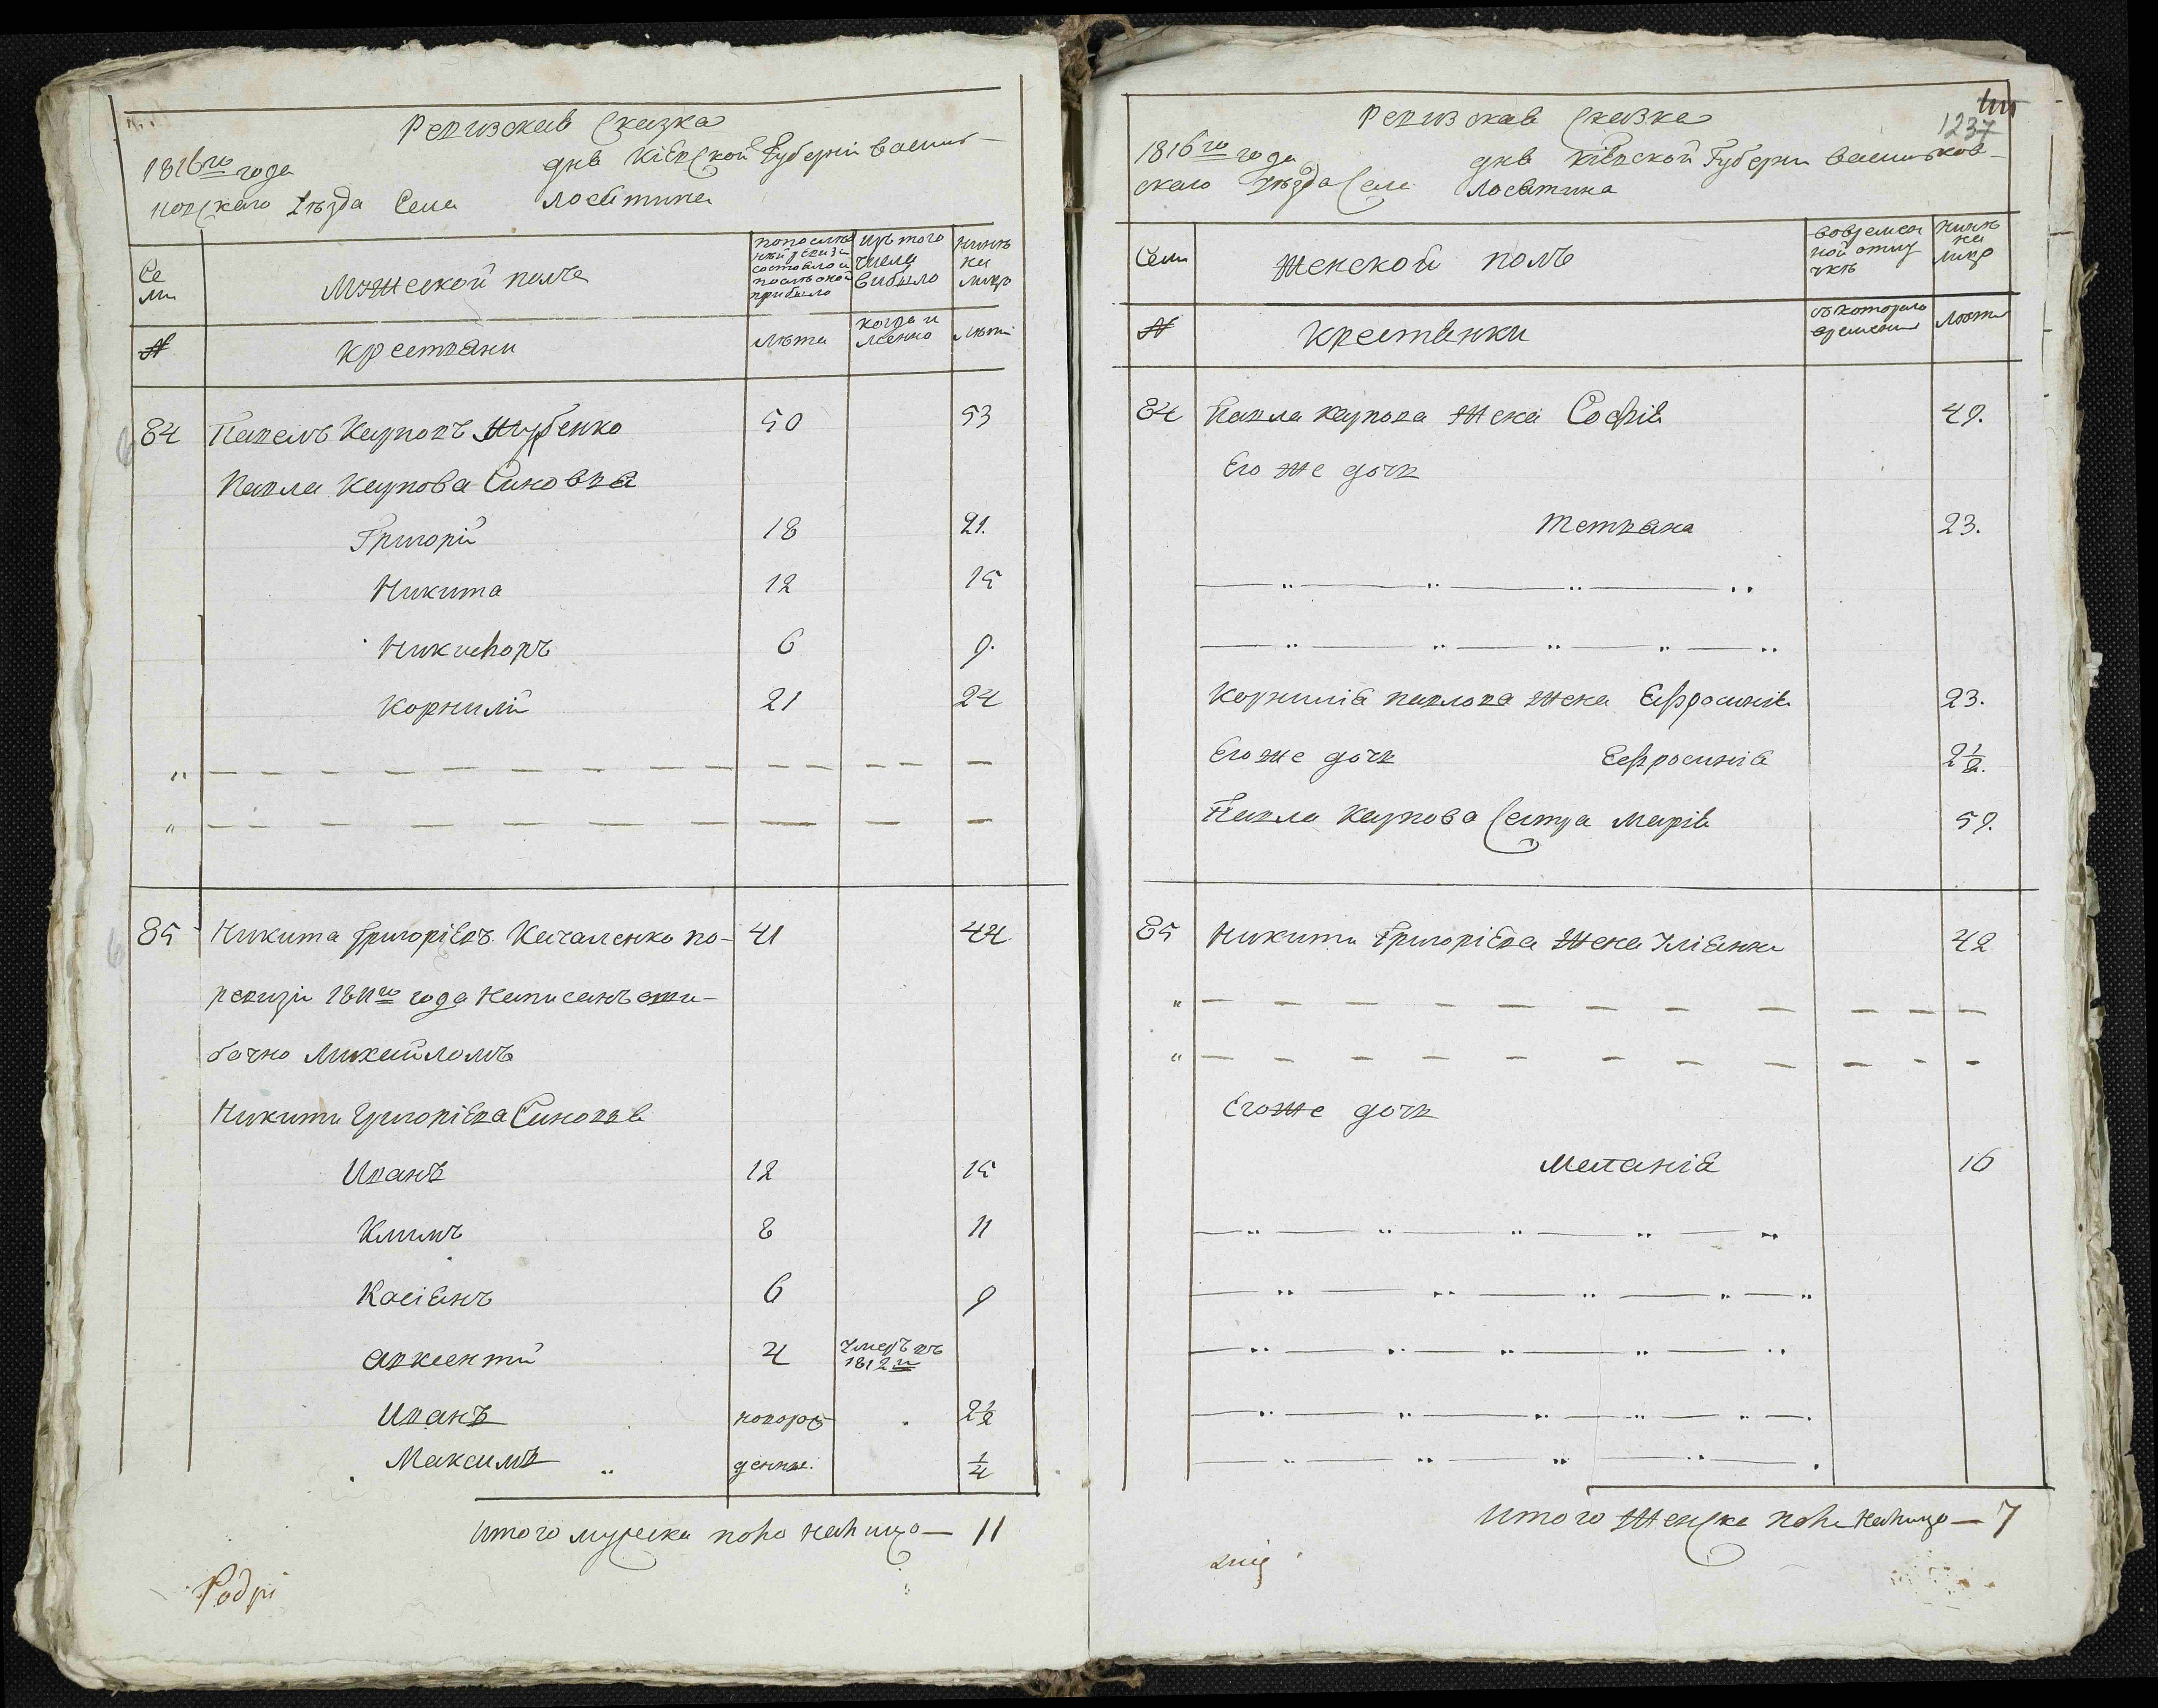 Ревизская Сказка
1816го года
дня Кіевской Губерніи Василь-
ковскаго Уѣзда Села Лосятина
Се
ми
Мужеской полъ
по послѣд
ней ревизіи
состояло и
послѣ оной
прибыло
Изъ того
числа
выбыло
нынѣ
на
лицо
№
Крестьяни
лѣта
когда и
менно
лѣта
84 Павелъ Карповъ 50 53
Павла Карпова Сыновья
Григорій 18 21.
Никита 12 15
Никифоръ 6 9.
Корнилій 21 24
85 Никита Григоріевъ Качаленко по- 41 44
ревизіи 1811го года написанъ оши-
бочно Михайломъ
Никиты Григоріева Сыновья
Иванъ 12 15
Климъ 8 11
Касіянъ 6 9
Авксентій 4 Умеръ въ
1812м
Иванъ новорож 2½
Максимъ денные. ¼
Итого мужеска пола налицо — 11
Podpi
Ревизская Сказка
1237
1816го года
дня Кіевской Губерни Васильков-
скаго Уѣзда Села Лосятина
Семи
Женской полъ
во времен
ной отлу
чкѣ
нынѣ
на
лицо
№
Крестянки
съ котораго
времени
Лѣта
84 Павла Карпова Жена Софія 49.
Его же дочь
Тетьяна 23.
Корнилія Павлова Жена Ефросинія 23.
Его же дочь Ефросинія 2½.
Павла Карпова Сестра Марія 59.
85 Никиты Григоріева Жена Уліянна 42
Его же дочь
Меланія 16
Итого Женска пола налицо — 7